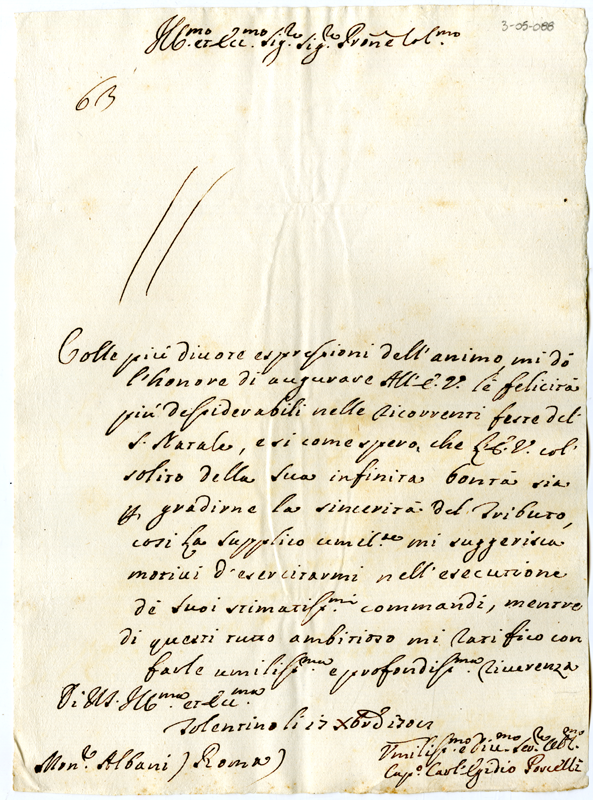 3-05-088
Ill.mo et Ecc.mo Sig.re Sig.re Prone Col.mo
63
Colle più divote espressioni dell'animo mi dò
l'honore di augurare All'E.V. le felicità
più dessiderabili nelle ricorrenti feste del
S. Natale, e si come spero, che L'E.V. col'
solito della sua infinita bontà sia
p gradirne la sincerità del tributo,
cosi La supplico umil.te mi suggerisca
motivi d'esercitarmi nell'esecutione
de suoi stimatiss.mi commandi, mentre
di questi tutto ambitioso mi ratifico con
farle umiliss.ma e profondiss.ma riverenza
Di V.S. Ill.ma et Ecc.ma
Tolentino li 17 Xbre
Mon.r Albani (Roma)
Umiliss.mo e Div.mo Ser.re Obl.mo
Cap.o Carl'Egidio Porcelli